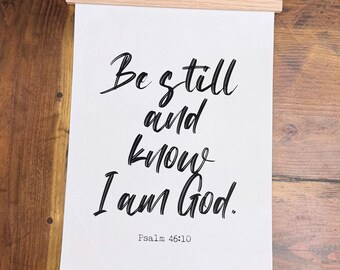 Be still
and
know
I am God.
Psalm 46:10